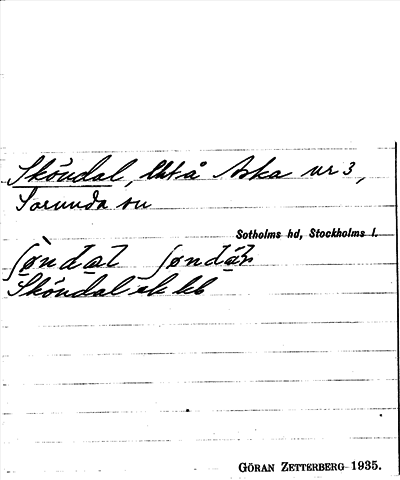 Sköndal, lht å Aska nr 3,
Sorunda sn
Sotholms hd, Stockholms l.
Sköndal ek kb
GÖRAN ZETTERBERG 1935.